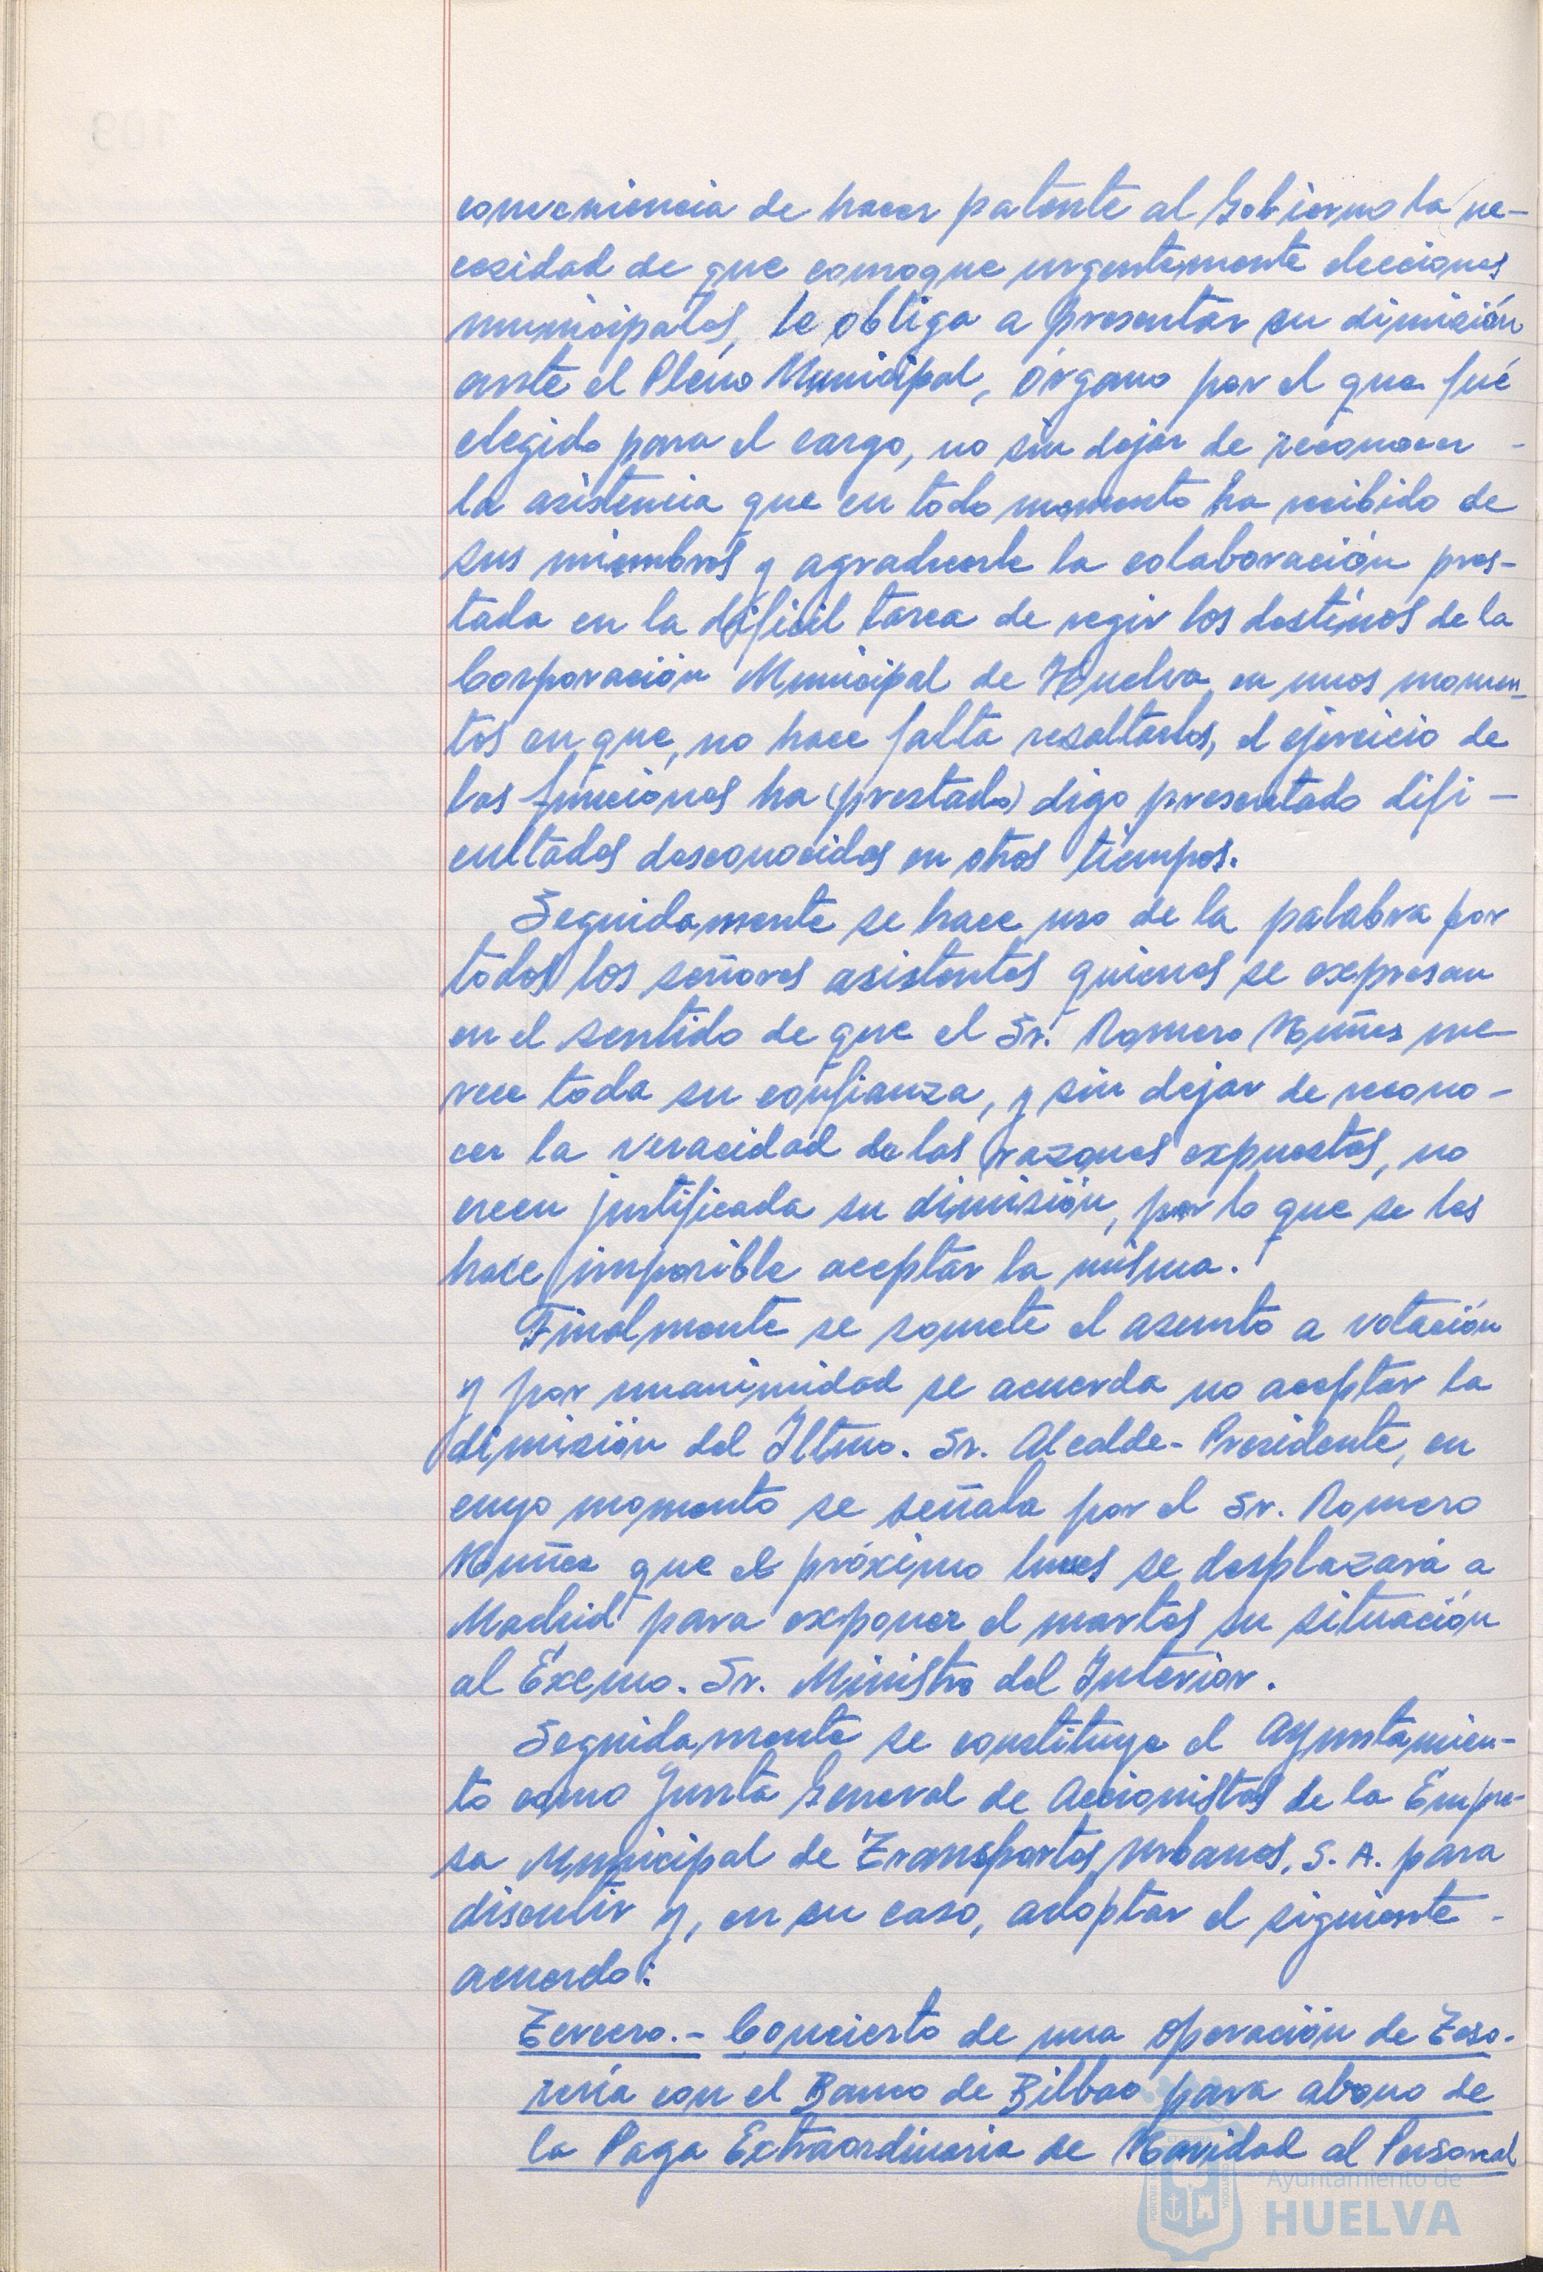 conveniencia de hacer patente al Gobierno la ne-
cesidad de que convoque urgentemente elecciones
municipales, le obliga a presentar su dimisión
ante el Pleno Municipal, órgano por el que fué
elegido para el cargo, no sin dejar de reconocer -
la asistencia que en todo momento ha recibido de
sus miembros y agradecerle la colaboración pres-
tada en la difícil tarea de regir los destinos de la
Corporación Municipal de Huelva, en unos momen-
tos en que, no hace falta resaltarlos, el ejercicio de
las funciones ha (prestado) digo presentado difi-
cultades desconocidas en otros tiempos.
Seguidamente se hace uso de la palabra por
todos los señores asistentes quienes se expresan
en el sentido de que el Sr. Romero Núñez me-
rece toda su confianza, y sin dejar de recono-
cer la veracidad de las razones expuestas, no
creen justificada su dimisión, por lo que se les
hace imposible aceptar la misma.
Finalmente se somete el asunto a votación
y por unanimidad se acuerda no aceptar la
dimisión del Iltmo. Sr. Alcalde-Presidente, en
cuyo momento se señala por el Sr. Romero
Núñez que el próximo lunes se desplazará a
Madrid para exponer el martes su situación
al Excmo. Sr. Ministro del Interior.
Seguidamente se constituye el Ayuntamien-
to como Junta General de Accionistas de la Empre-
sa Municipal de Transportes Urbanos, S. A. para
discutir y, en su caso, adoptar el siguiente -
acuerdo:
Tercero.- Concierto de una operación de Teso-
rería con el Banco de Bilbao para abono de
la Paga Extraordinaria de Navidad al Personal
Ayuntamiento de
HUELVA